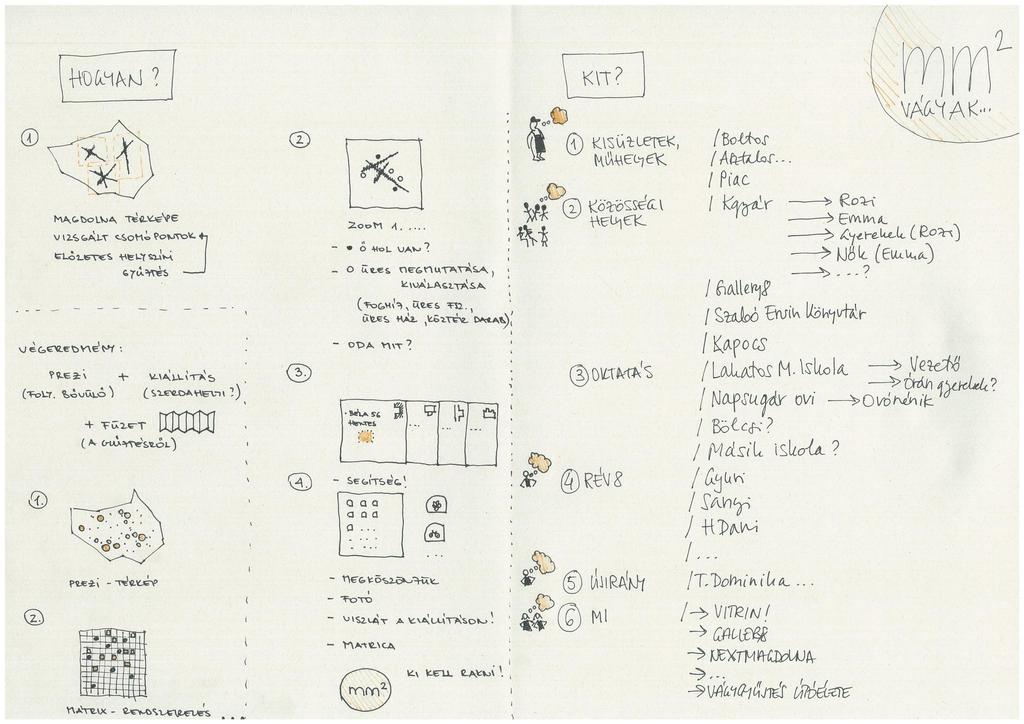 HOGYAN?
1
MAGDOLNA TÉRKÉPE
VIZSGÁLT CSOMÓPONTOK
ELŐZETES HELYSZÍNI
GYŰJTÉS
VÉGEREDMÉNY:
PREZI + KIÁLLÍTÁS
(FOLY. BŐVÜLŐ) (SZERDAHELYI?)
+ FÜZET
(A GYŰJTÉSRŐL)
1.
PREZI - TÉRKÉP
2.
MÁTRIX - RENDSZEREZÉS ...
2
ZOOM 1. ....
- • Ő HOL VAN?
- O ÜRES MEGMUTATÁSA,
KIVÁLASZTÁSA
(FOGHÍJ, ÜRES FSZ.,
ÜRES HÁZ, KÖZTÉR DARAB)
- ODA MIT?
3.
• BÉLA 56
HENTES
...
...
4.
- SEGÍTSÉG!
...
- MEGKÖSZÖNJÜK
- FOTÓ
- VISZLÁT A KIÁLLÍTÁSON!
- MATRICA
KI KELL RAKNI!
mm²
KIT?
mm²
VÁGYAK...
1 KISÜZLETEK,
MŰHELYEK
/ Boltos
/ Asztalos...
/ Piac
2 KÖZÖSSÉGI
HELYEK
/ Kgyár → Rozi
→ Emma
→ Gyerekek (Rozi)
→ Nők (Emma)
→ ...?
/ Gallery8
/ Szabó Ervin Könyvtár
/ Kapocs
3 OKTATÁS
/ Lakatos M. Iskola → Vezető
→ Órán gyerekek?
/ Napsugár ovi → Óvónénik
/ Bölcsi?
/ Másik iskola?
4 RÉV8
/ Gyuri
/ Sanyi
/ H Dani
/ ...
5 ÚJIRÁNY / T. Dominika ...
6 MI / → VITRIN!
→ GALLERY8
→ NEXTMAGDOLNA
→ ...
→ VÁGYGYŰJTÉS UTÓÉLETE